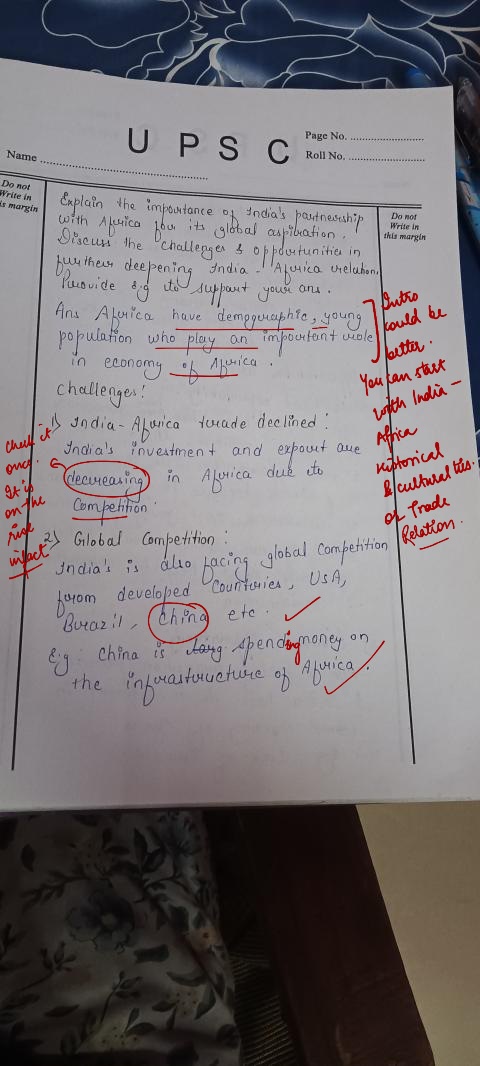 UPSC
Page No. ..........................
Name ..........................................................
Roll No. ..........................
Do not
Write in
is margin
Do not
Write in
this margin
Explain the importance of India's partnership
with Africa for its global aspiration.
Discuss the challenges & opportunities in
further deepening India - Africa relation.
Provide e.g to support your ans.
Ans Africa have demographic, young
population who play an important role
in economy of Africa.
Intro
could be
better.
You can start
with India -
Africa
Historical
& cultural ties.
or Trade
Relation.
Challenges:
1) India-Africa trade declined:
India's investment and export are
decreasing in Africa due to
Competition.
Check it
once.
It is
on the
rise
infact
2) Global Competition:
India's is also facing global competition
from developed Countries, USA,
Brazil, China etc.
E.g: China is spending money on
the infrastructure of Africa.